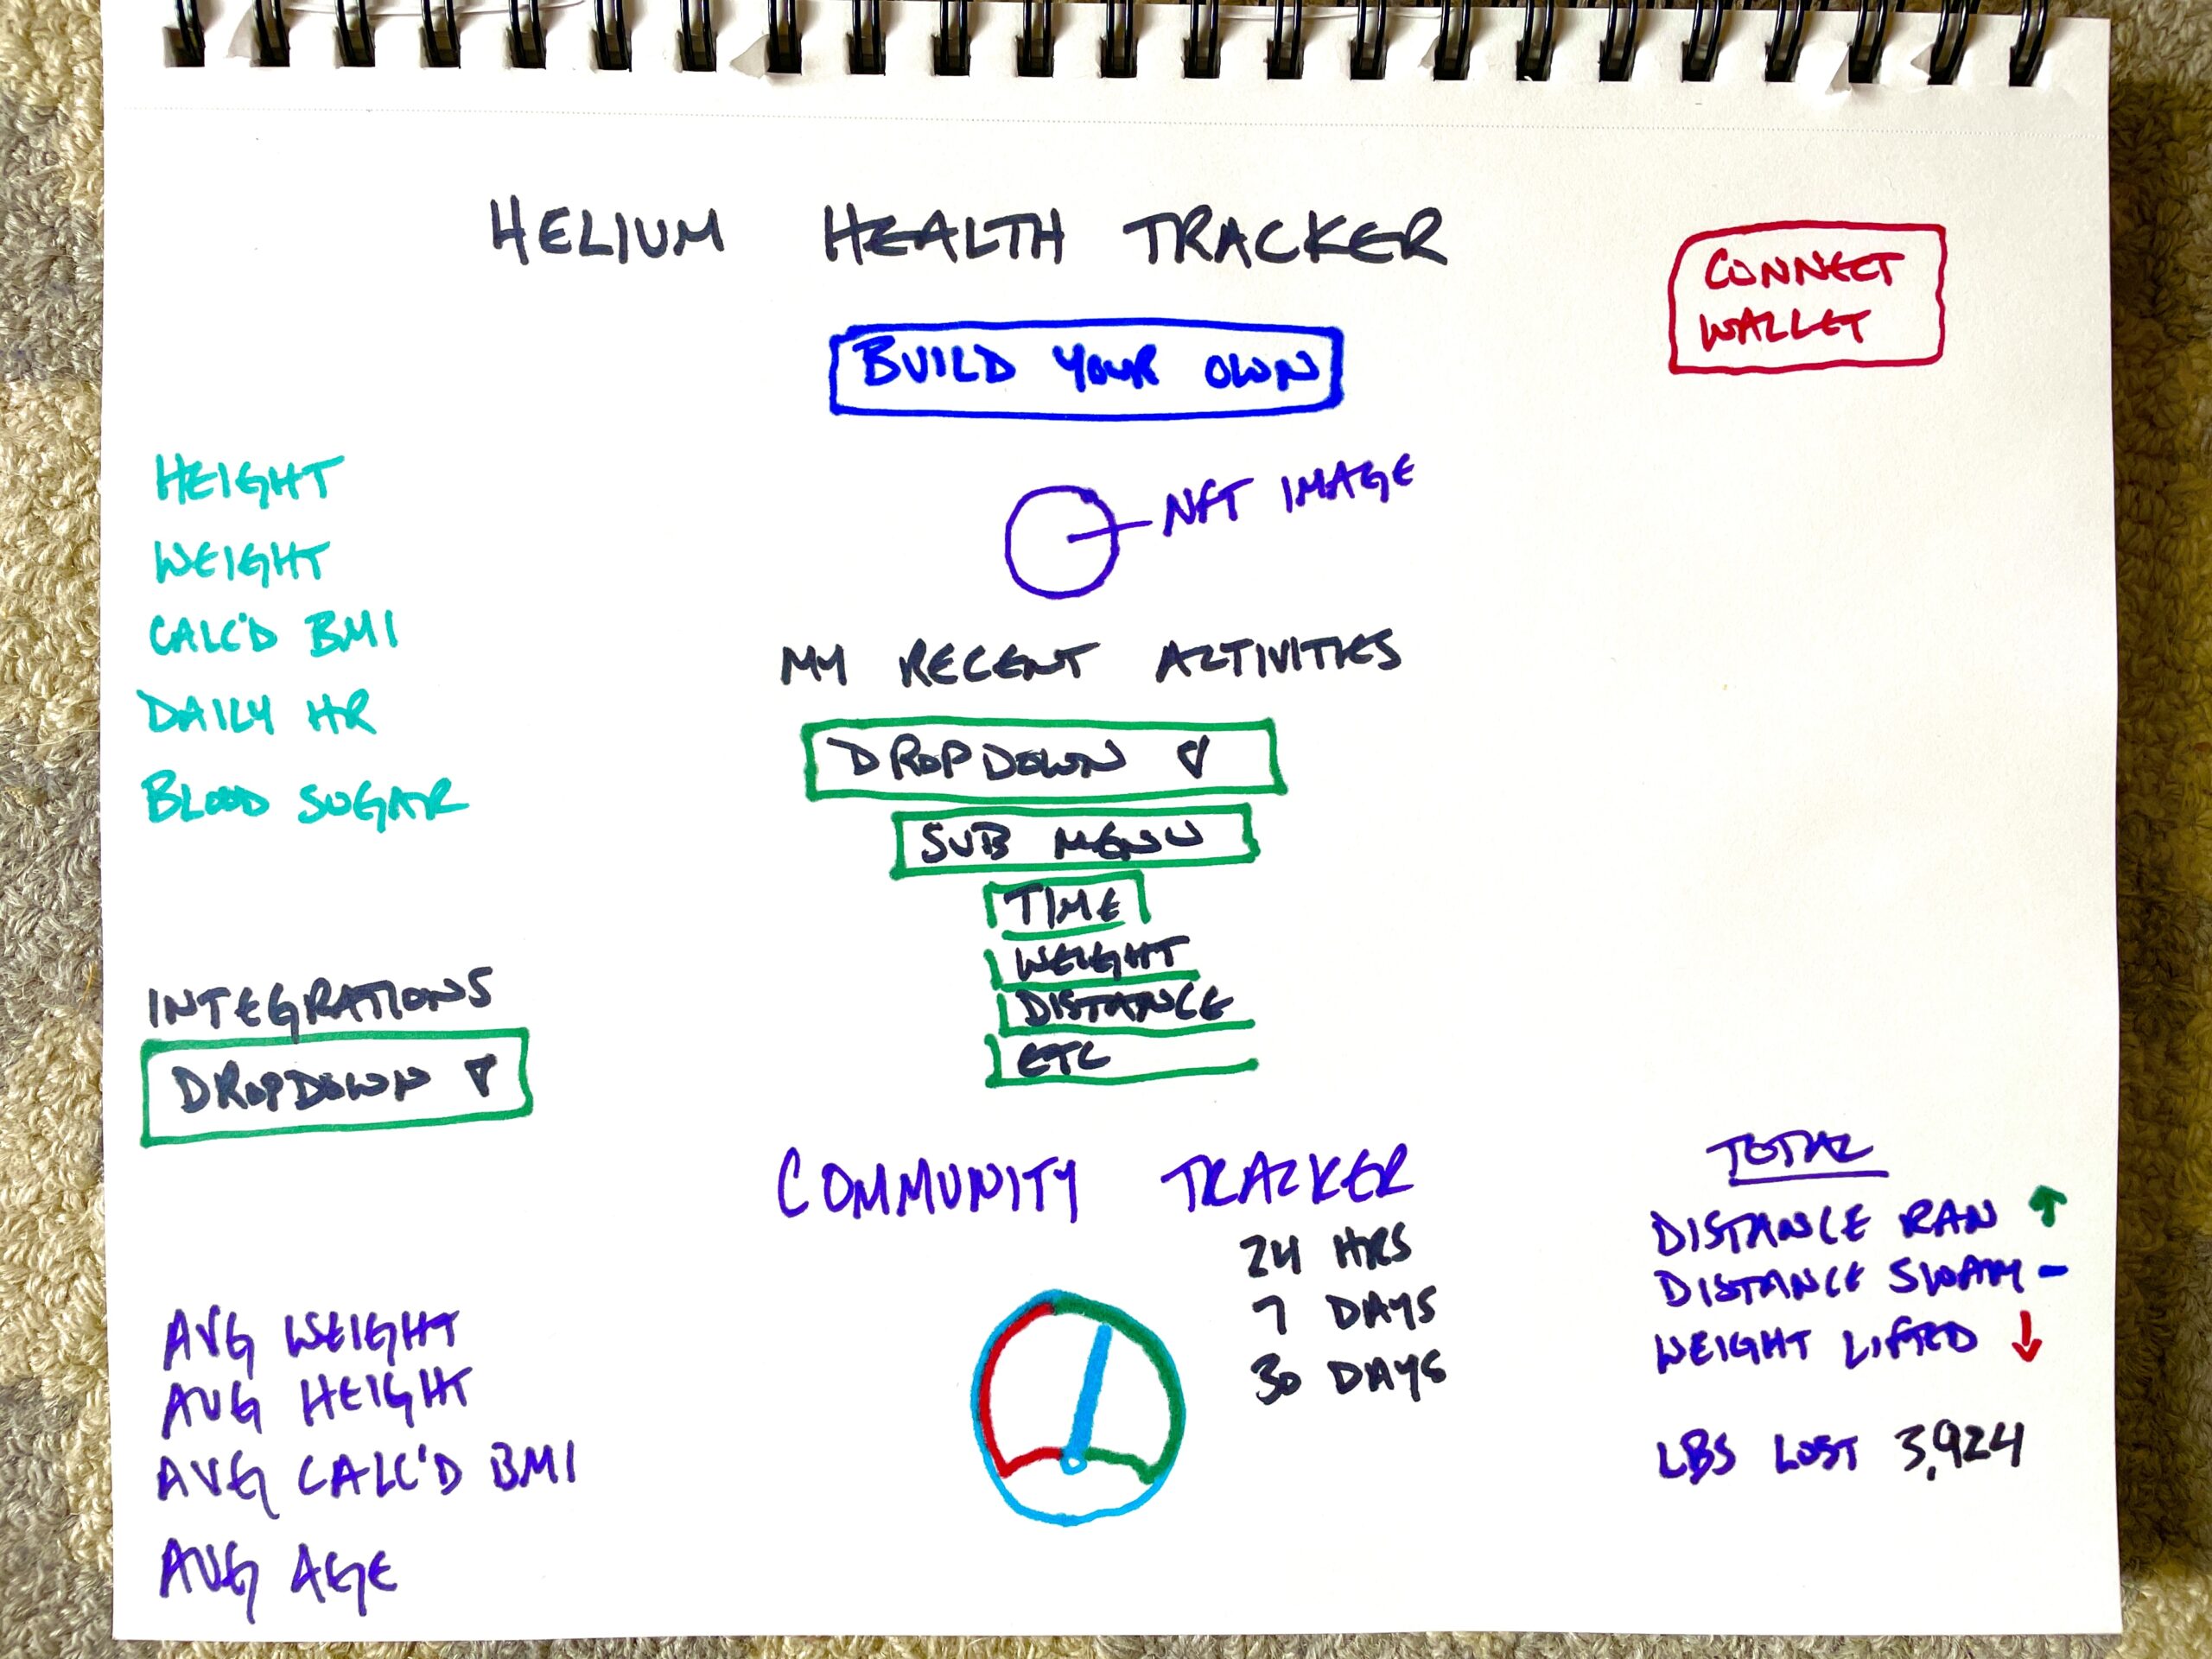 HELIUM HEALTH TRACKER
CONNECT
WALLET
BUILD YOUR OWN
NFT IMAGE
HEIGHT
WEIGHT
CALC'D BMI
DAILY HR
BLOOD SUGAR
MY RECENT ACTIVITIES
DROPDOWN
SUB MENU
TIME
WEIGHT
DISTANCE
ETC
INTEGRATIONS
DROPDOWN
COMMUNITY TRACKER
24 HRS
7 DAYS
30 DAYS
TOTAL
DISTANCE RAN ↑
DISTANCE SWAM -
WEIGHT LIFTED ↓
LBS LOST 3,924
AVG WEIGHT
AVG HEIGHT
AVG CALC'D BMI
AVG AGE